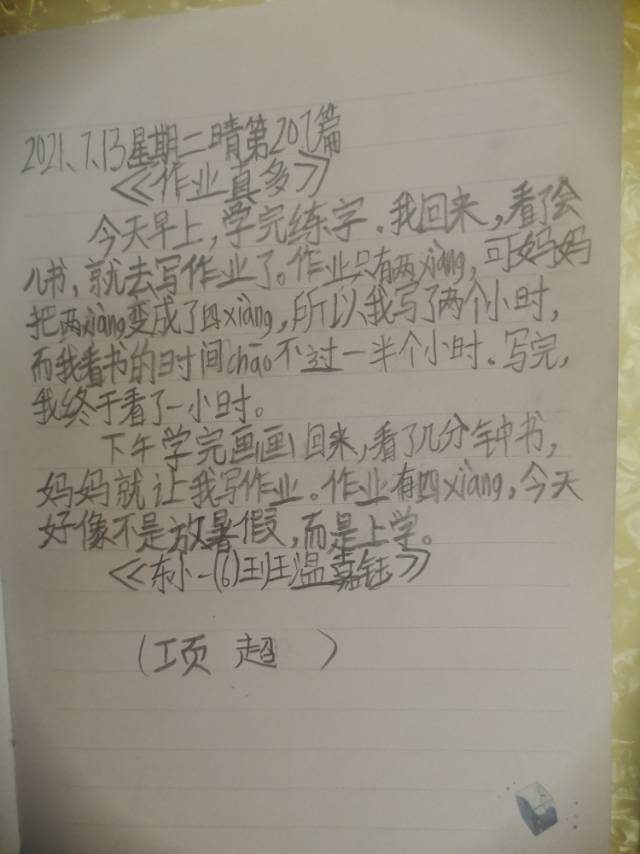 2021、7.13星期二晴第207篇
《作业真多》
今天早上,学完练字.我回来,看了会
儿书,就去写作业了。作业只有两xiàng,可妈妈
把两xiàng变成了四xiàng,所以我写了两个小时,
而我看书的时间chāo不过一半个小时.写完,
我终于看了一小时。
下午学完画画回来,看了几分钟书,
妈妈就让我写作业。作业有四xiàng,今天
好像不是放暑假,而是上学。
《东小一(6)王温嘉钰》
(项 超 )